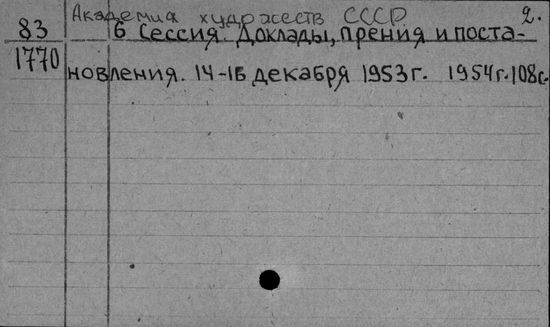 Академия художеств СССР. 2.
83 6 Сессия. Доклады, прения и поста-
1770 новления. 14-16 декабря 1953 г. 1954 г. 108 с.